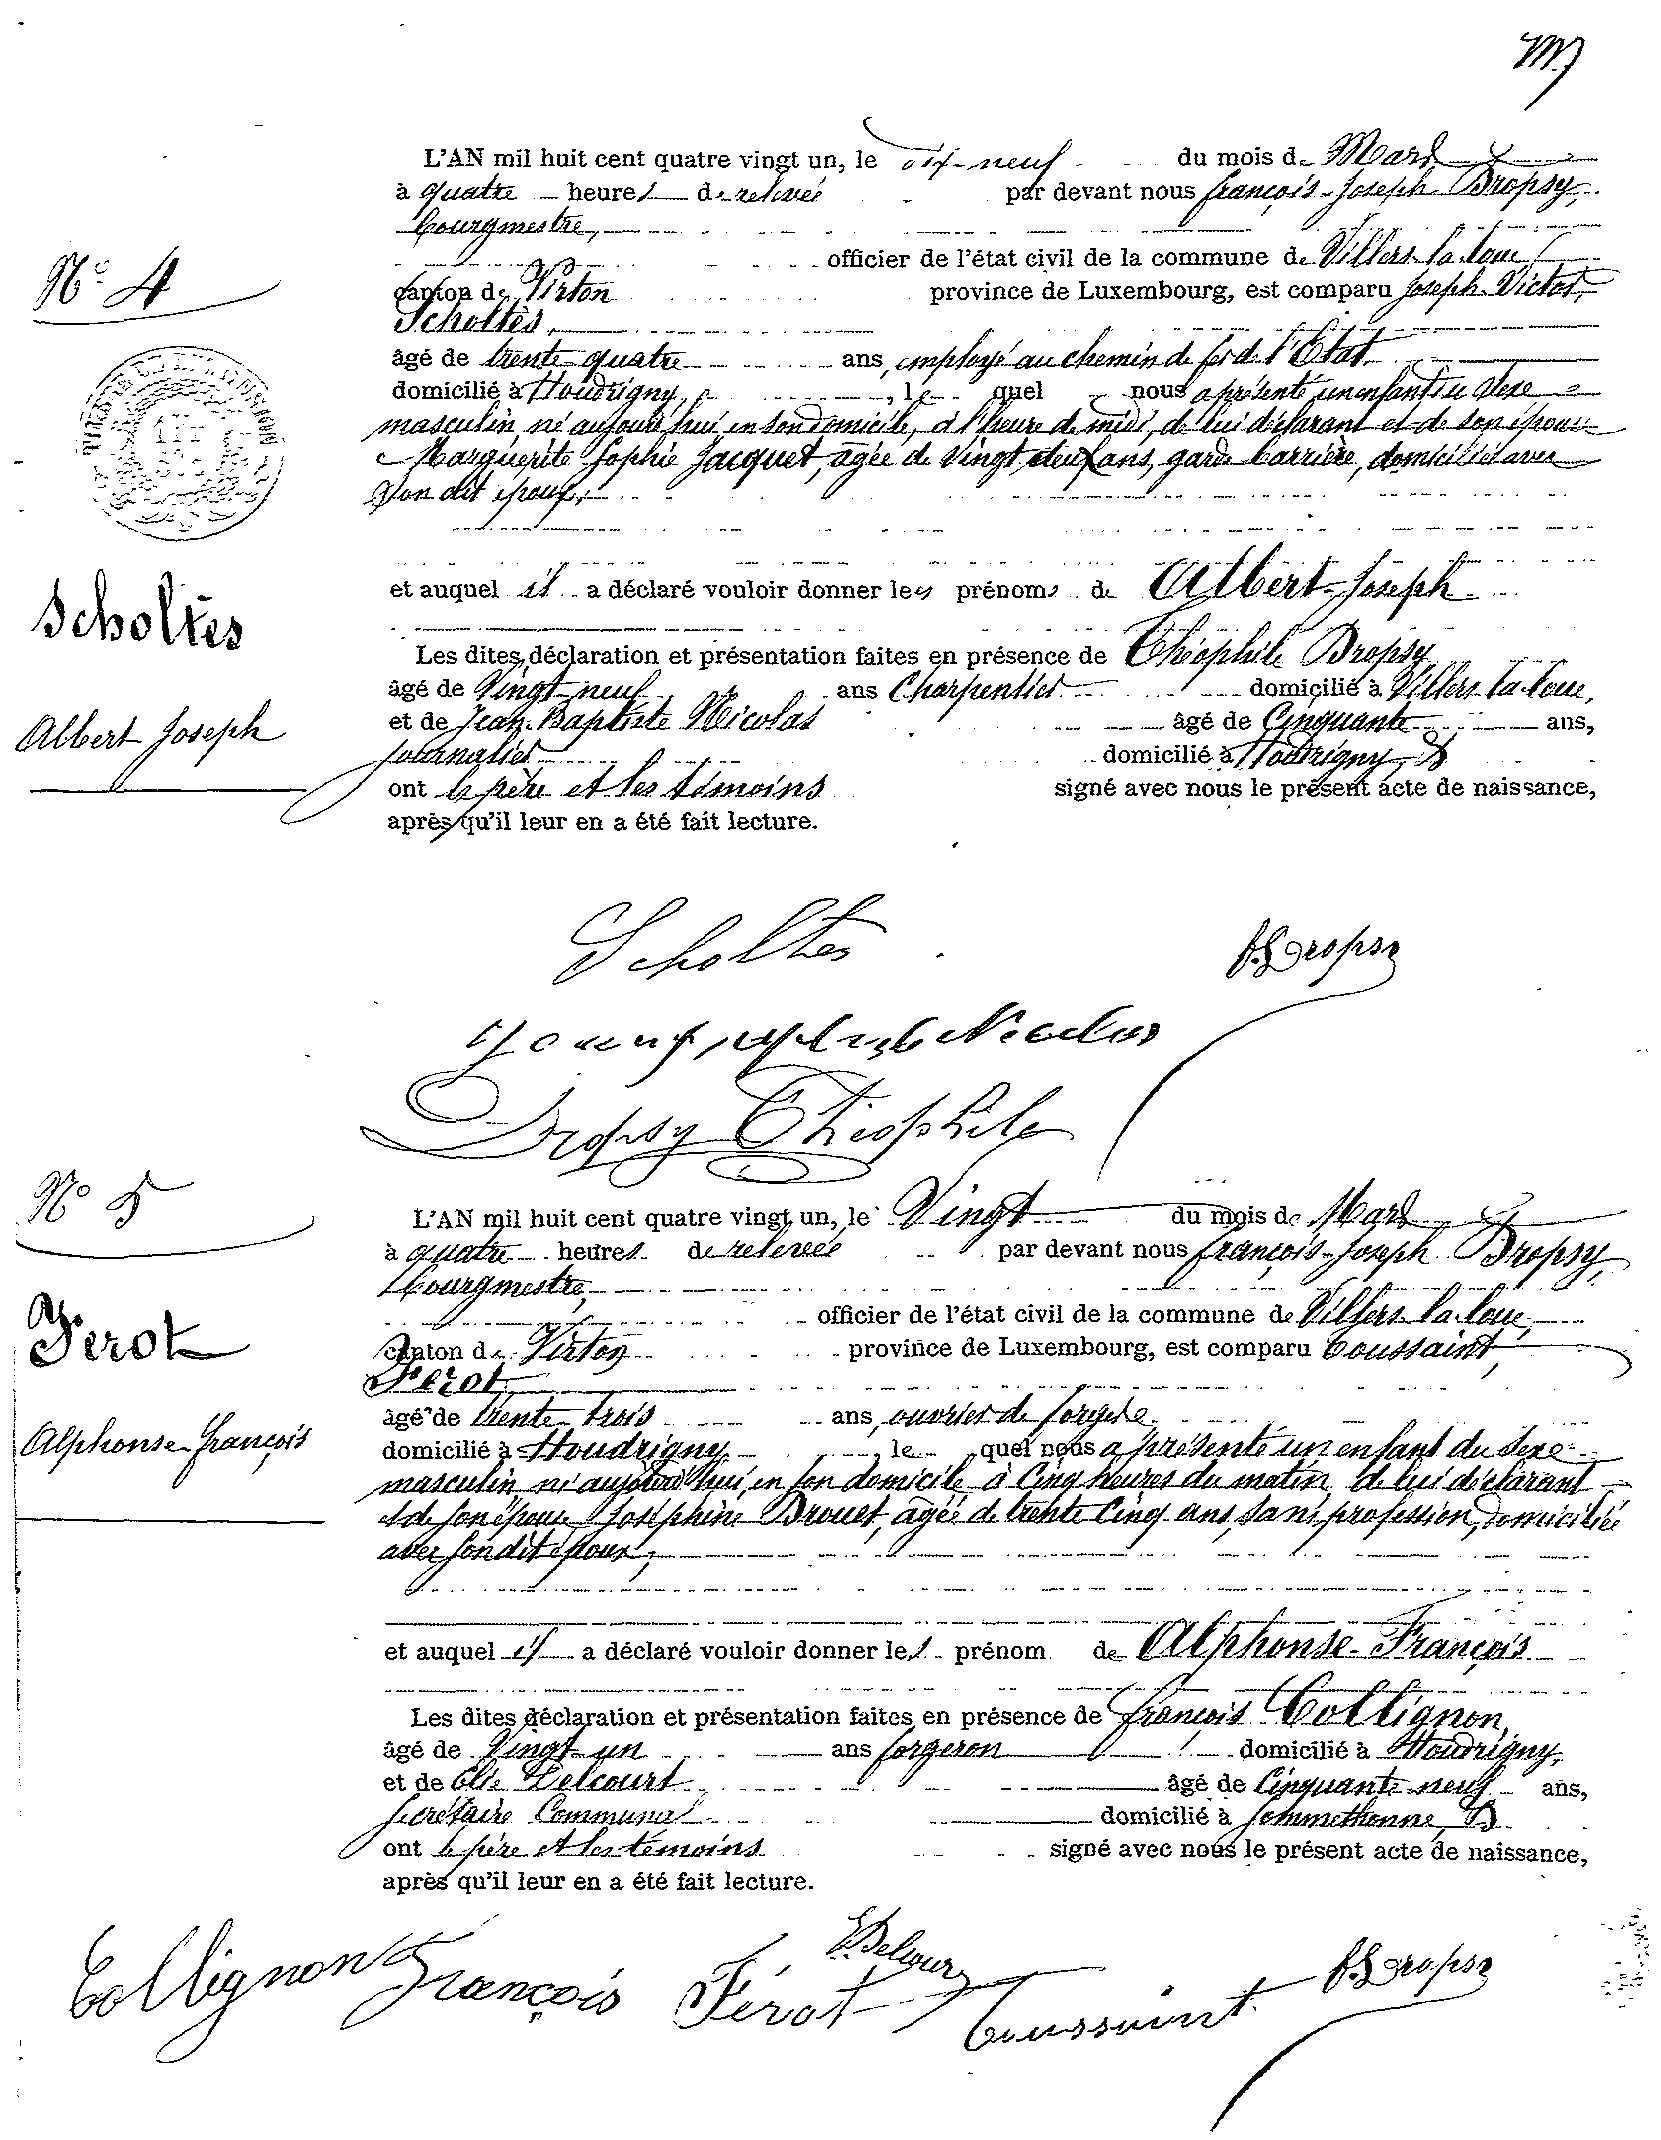 L'AN mil huit cent quatre vingt un, le dix-neuf du mois de Mars
à quatre heures de relevée par devant nous françois-Joseph Dropsy,
bourgmestre,
officier de l'état civil de la commune de Villers-la-loue,
N° 4
canton de Virton province de Luxembourg, est comparu Joseph-Victor,
Scholtès,
âgé de trente-quatre ans, employé au chemin de fer de l'Etat
domicilié à Houdrigny, lequel nous a présenté un enfant du sexe
masculin, né aujourd'hui, en son domicile, à l'heure de midi, de lui déclarant et de son épouse
Marguerite Sophie Jacquet, agée de vingt deux ans, garde barrière, domiciliée avec
son dit époux;
et auquel il a déclaré vouloir donner les prénoms de Albert-Joseph
Scholtès
Les dites déclaration et présentation faites en présence de Théophile Dropsy
âgé de Vingt-neuf ans Charpentier domicilié à Villers-la-loue,
et de Jean-Baptiste Nicolas âgé de Cinquante ans,
Albert Joseph
Journalier domicilié à Houdrigny,
ont le père et les témoins signé avec nous le présent acte de naissance,
après qu'il leur en a été fait lecture.
Scholtes
f.J. Dropsy
Nicolas
Dropsy Théophile
N° 5
L'AN mil huit cent quatre vingt un, le Vingt du mois de Mars
à quatre heures de relevée par devant nous françois-Joseph Dropsy,
bourgmestre,
officier de l'état civil de la commune de Villers-la-loue,
Férot
canton de Virton province de Luxembourg, est comparu Toussaint,
Férot,
âgé de trente-trois ans, ouvrier de forges
Alphonse-françois
domicilié à Houdrigny, lequel nous a présenté un enfant du sexe
masculin né aujourd'hui, en son domicile à Cinq heures du matin, de lui déclarant
et de son épouse Joséphine Drouet, agée de trente Cinq ans, sans profession, domiciliée
avec son dit époux;
et auquel il a déclaré vouloir donner les prénom de Alphonse-François
Les dites déclaration et présentation faites en présence de françois Collignon,
âgé de Vingt-un ans forgeron domicilié à Houdrigny,
et de Elie Delcourt âgé de Cinquante neuf ans,
Secrétaire Communal domicilié à Sommethonne,
ont le père et les témoins signé avec nous le présent acte de naissance,
après qu'il leur en a été fait lecture.
Collignon François
E. Delcour
Férot Toussaint
f.J. Dropsy